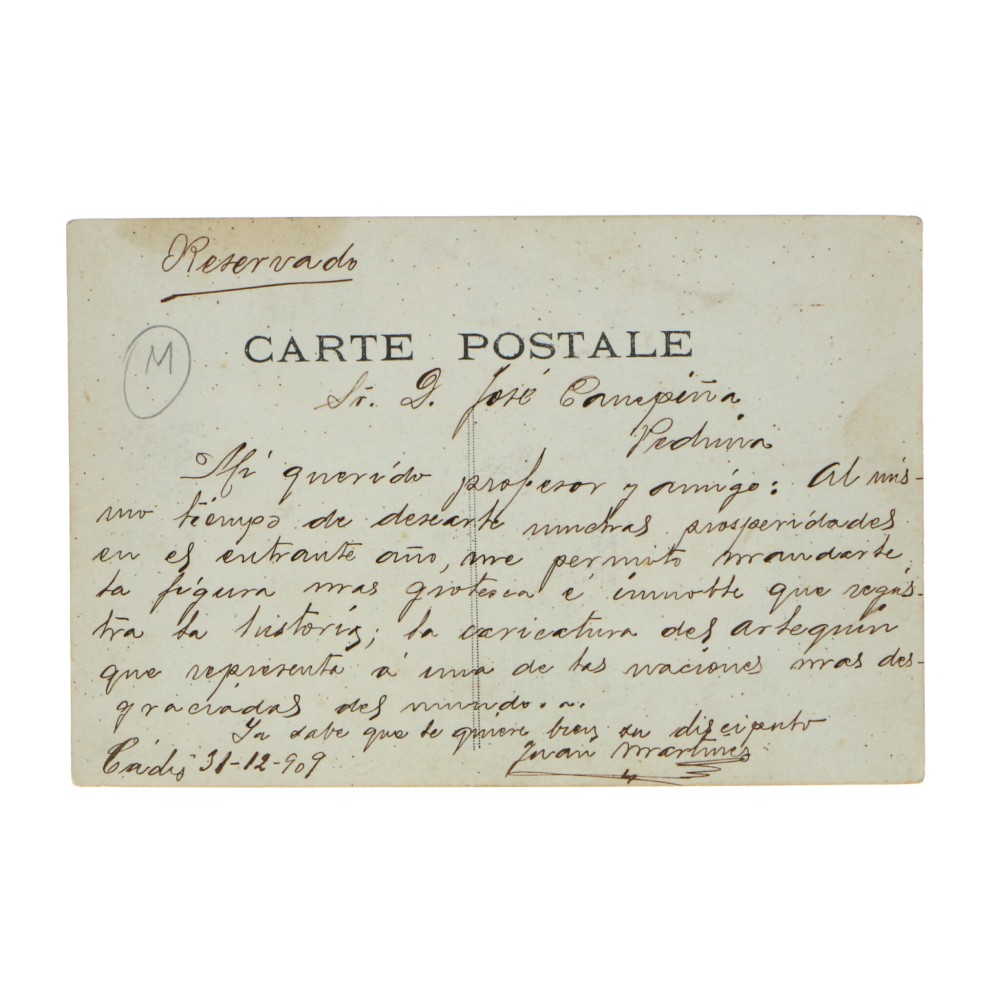 Reservado
M
CARTE POSTALE
Sr. D. José Campiña
Mi querido profesor y amigo: Al mis-
mo tiempo de desearte muchas prosperidades
en el entrante año, me permito mandarte
la figura mas grotesca é innoble que regis-
tra la historia; la caricatura del arlequin
que representa á una de las naciones mas des-
graciadas del mundo.
Ya sabe que le quiere bien su discipulo
Juan Martinez
Cádiz 31-12-909